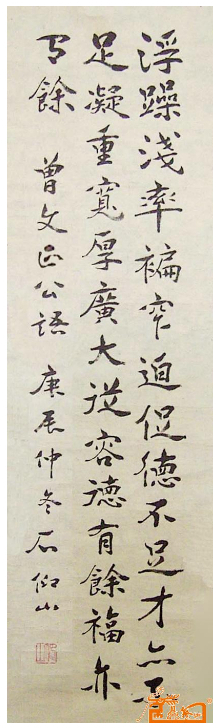 浮躁淺率褊窄迫促德不足才亦不
足凝重寬厚廣大從容德有餘福亦
有餘 曾文正公語 庚辰仲冬石仰山